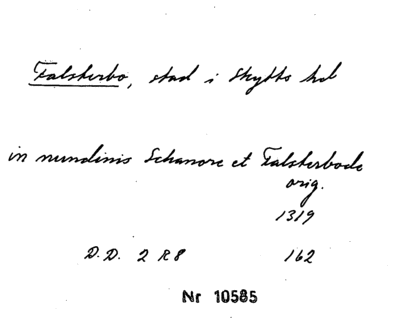 Falsterbo, stad i Skytts hd
in nundinis Schanore et Falsterbode
orig.
1319
D.D. 2 R 8 162
Nr 10585